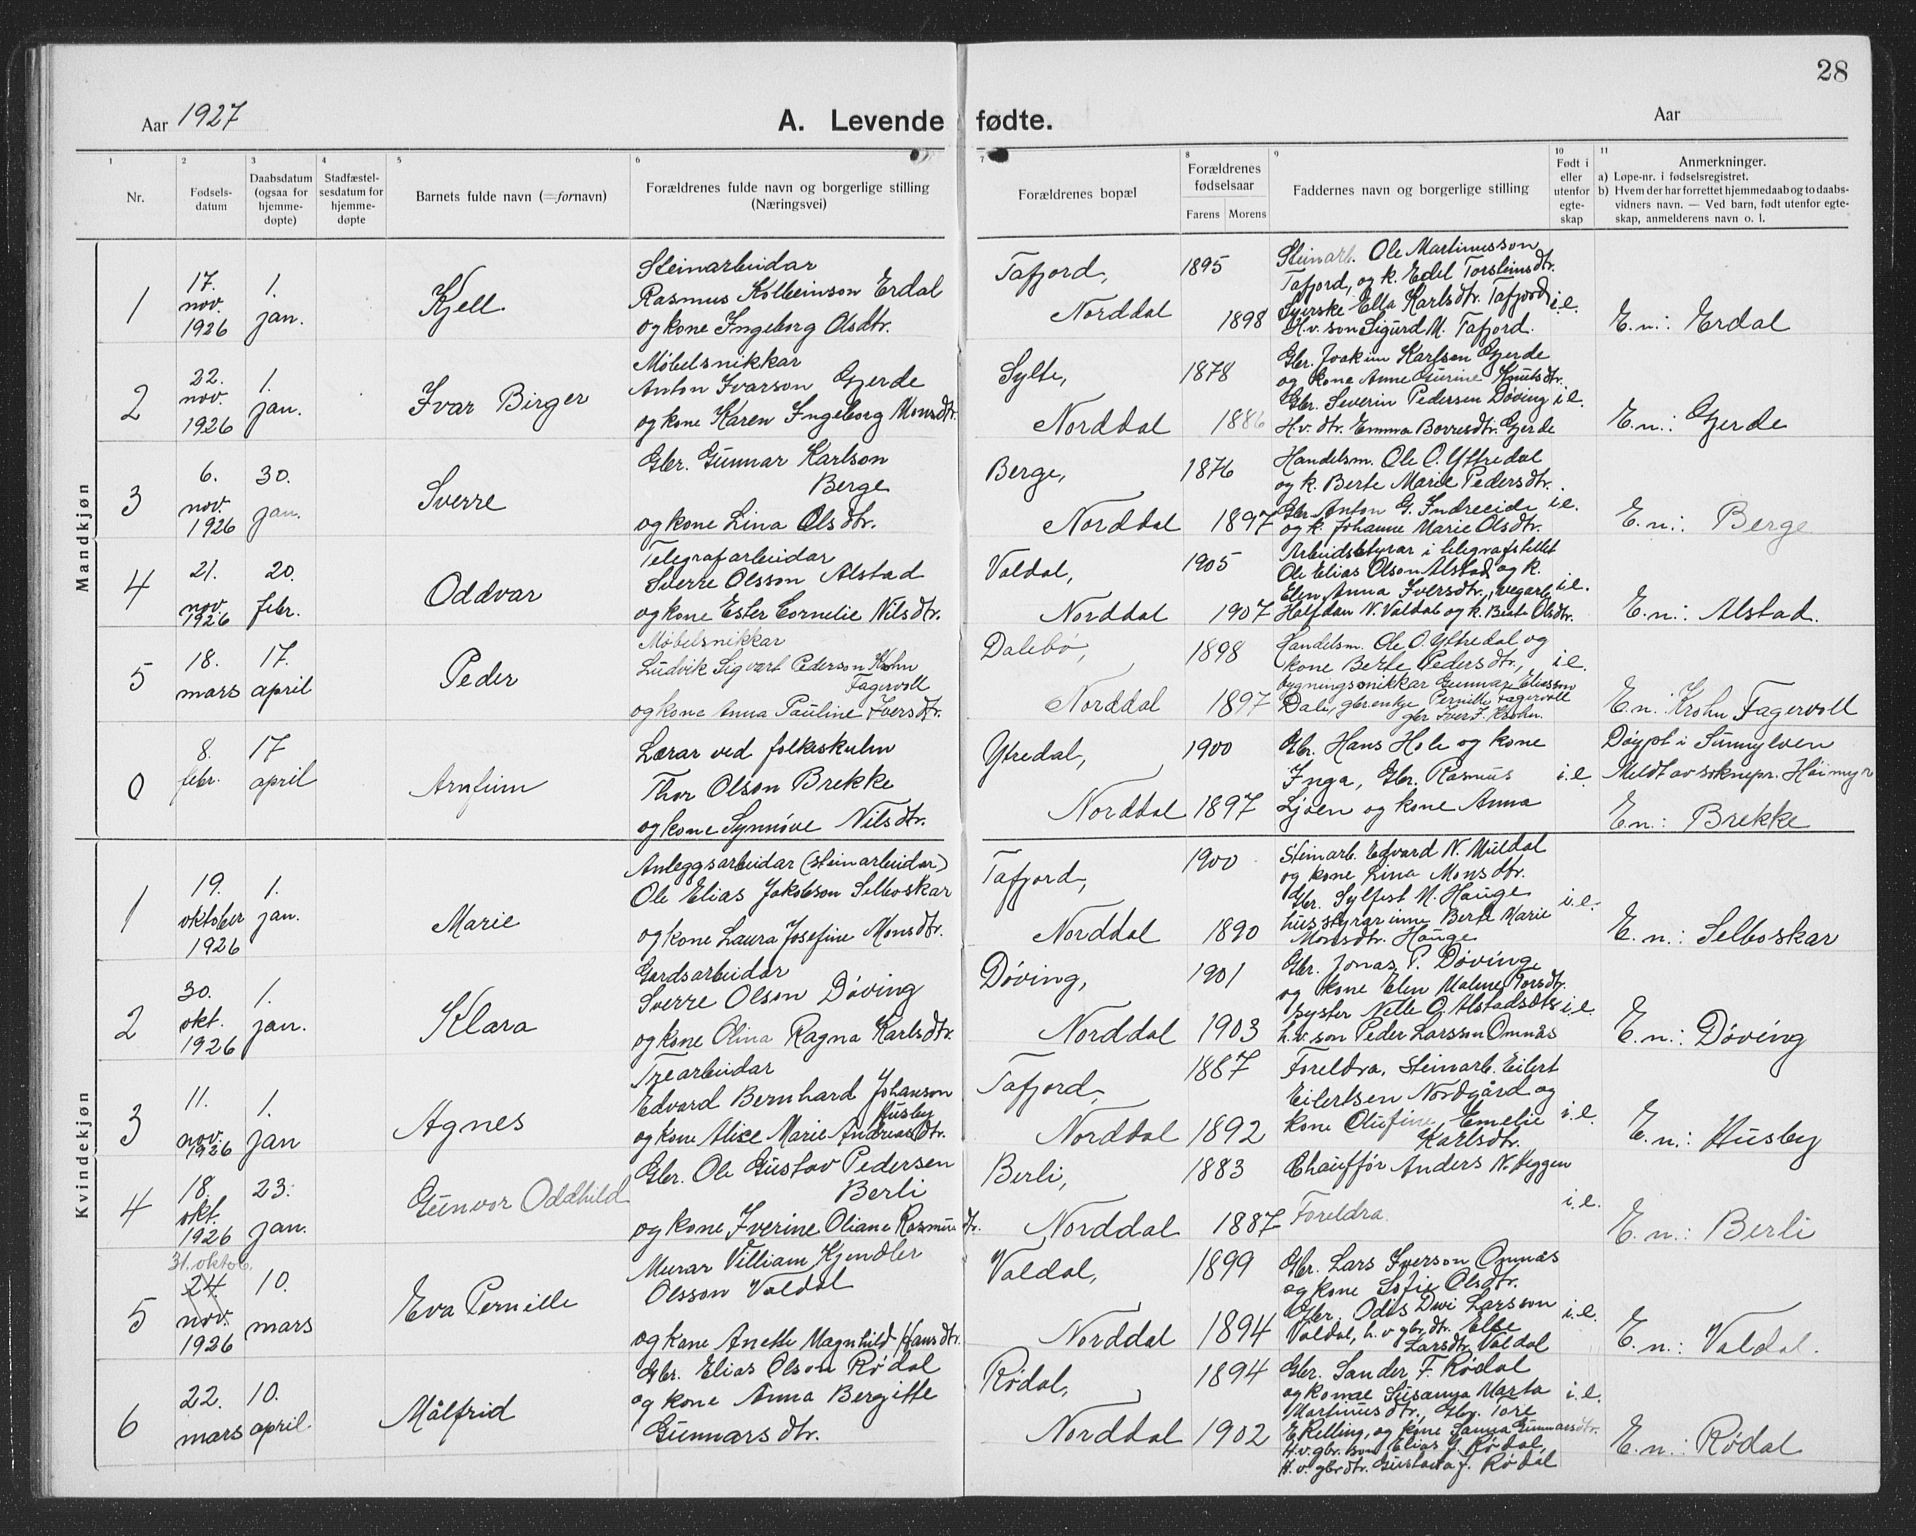 28
Aar 1927
A. Levende fødte.
Aar
1 2 3 4 5 6 7 8 9 10 11
Nr.
Fødsels-
datum
Daabsdatum
(ogsaa for
hjemme-
døpte)
Stadfæstel-
sesdatum for
hjemme-
døpte
Barnets fulde navn (=fornavn)
Forældrenes fulde navn og borgerlige stilling
(Næringsvei)
Forældrenes bopæl
Forældrenes
fødselsaar
Farens Morens
Faddernes navn og borgerlige stilling
Født i
eller
utenfor
egte-
skap
Anmerkninger.
a) Løpe-nr. i fødselsregistret.
b) Hvem der har forrettet hjemmedaab og to daabs-
vidners navn. — Ved barn, født utenfor egte-
skap, anmelderens navn o. l.
Mandkjøn
1
17.
nov.
1926
1.
jan.
Kjell
Steinarbeidar
Rasmus Kolbeinson Erdal
og kone Ingeborg Olsdtr.
Tafjord,
Norddal
1895
1898
Steinarb. Ole Martinusson
Tafjord, og k. Edel Torsteinsdtr.
Syerske Ella Karlsdtr. Tafjord
H.v. son Sigurd M. Tafjord.
i.e.
E.n.: Erdal
2
22.
nov.
1926
1.
jan.
Ivar Birger
Møbelsnikkar
Anton Ivarson Gjerde
og kone Karen Ingeborg Monsdtr.
Sylte,
Norddal
1878
1886
Gbr. Joakim Karlsen Gjerde
og kone Anne Gurine Knutsdtr.
Gbr. Severin Pedersen Døving
H.v. dtr. Emma Bovresdtr. Gjerde
i.e.
E.n.: Gjerde
3
6.
nov.
1926
30.
jan.
Sverre
Gbr. Gunnar Karlson
Berge
og kone Lina Olsdtr.
Berge,
Norddal
1876
1897
Handelsm. Ole O. Yttredal
og k. Berte Marie Pedersdtr.
Gbr. Anton G. Indreeide
og k. Johanne Marie Olsdtr.
i.e.
E.n.: Berge
4
21.
nov.
1926
20.
febr.
Oddvar
Telegrafarbeidar
Sverre Olsson Alstad
og kone Ester Cornelie Nilsdtr.
Valdal,
Norddal
1905
1907
Arbeidsstyrar i telegrafstellet
Ole Elias Olson Alstad og k.
Elen Anna Iversdtr., vegarb.
Halfdan N. Valdal og k. Berte Olsdtr.
i.e.
E.n.: Alstad.
5
18.
mars
17.
april
Peder
Møbelsnikkar
Ludvik Sigvart Pederson Krohn
Fagervoll
og kone Anna Pauline Iversdtr.
Dalebø,
Norddal
1898
1897
Handelsm. Ole O. Yttredal og
kone Berte Pedersdtr.,
bygningssnikkar Gunnar Eliasson
Dale, gbrenkje Pernille Fagervoll
gbr Iver F. Krohn.
i.e.
E.n.: Krohn Fagervoll
0
8.
febr.
17
april
Arnfinn
Lærar ved folkeskulen
Thor Olson Brekke
og kone Synnøve Nilsdtr.
Ytredal,
Norddal
1900
1897
Gbr. Hans Hole og kone
Inga, Gbr. Rasmus
Ljøen og kone Anna
i.e.
Døypt i Sunnylven
Meldt av soknepr. Høimyr
E.n.: Brekke
Kvindekjøn
1
19.
oktober
1926
1.
jan.
Marie
Anleggsarbeidar (steinarbeidar)
Ole Elias Jakobson Selboskar
og kone Laura Josefine Monsdtr.
Tafjord,
Norddal
1900
1890
Steinarb. Edvard N. Muldal
og kone Lina Monsdtr.
Gbr. Sylfest M. Hauge
husstyrarinne Berte Marie
Monsdtr. Hauge
i.e.
E.n.: Selboskar
2
30.
okt.
1926
1.
jan.
Klara
Gardsarbeidar
Sverre Olson Døving
og kone Olina Ragna Karlsdtr.
Døving,
Norddal
1901
1903
Gbr. Jonas P. Døving
og kone Elen Malene Torsdtr.
syster Nelle O. Alstadsdtr
h.v. son Peder Larsson Omnås
i.e.
E.n.: Døving
3
11.
nov.
1926
1.
jan
Agnes
Trearbeidar
Edvard Bernhard Johanson
Husby
og kone Alice Marie Andreasdtr.
Tafjord,
Norddal
1887
1892
Foreldra, Steinarb. Eilert
Eilertsen Nordgård og
kone Olufine Emelie
Karlsdtr.
i.e.
E.n.: Husby
4
18.
okt.
1926
23.
jan.
Gunvor Oddhild
Gbr. Ole Gustav Pedersen
Berli
og kone Iverine Oliane Rasmusdtr.
Berli,
Norddal
1883
1887
Chauffør Anders N. Heggen
Foreldra
i.e.
E.n.: Berli
5
31. oktob.
24
nov.
1926
10.
mars
Eva Pernille
Murar Villiam Kjendler
Olsson Valdal
og kone Anette Magnhild Hansdtr.
Valdal,
Norddal
1899
1894
Gbr. Lars Iverson Omnås
og kone Sofie Olsdtr.
Gbr. Odis Dwi Larsson
Valdal, h.v gbrdtr. Else
Larsdtr. Valdal
i.e.
E.n.: Valdal.
6
22.
mars
10.
april
Målfrid
Gbr. Elias Olson Rødal
og kone Anna Bergitte
Gunnarsdtr.
Rødal,
Norddal
1894
1902
Gbr. Sander F. Rødal
og konae Susanna Marta
Martinusdtr., Gbr. Tore
E Relling, og kone Sanna Gunnarsdtr.
H.v. gbr. son Elias J. Rødal,
H.v. gbrdtr. Gustava J. Rødal
i.e.
E.n.: Rødal